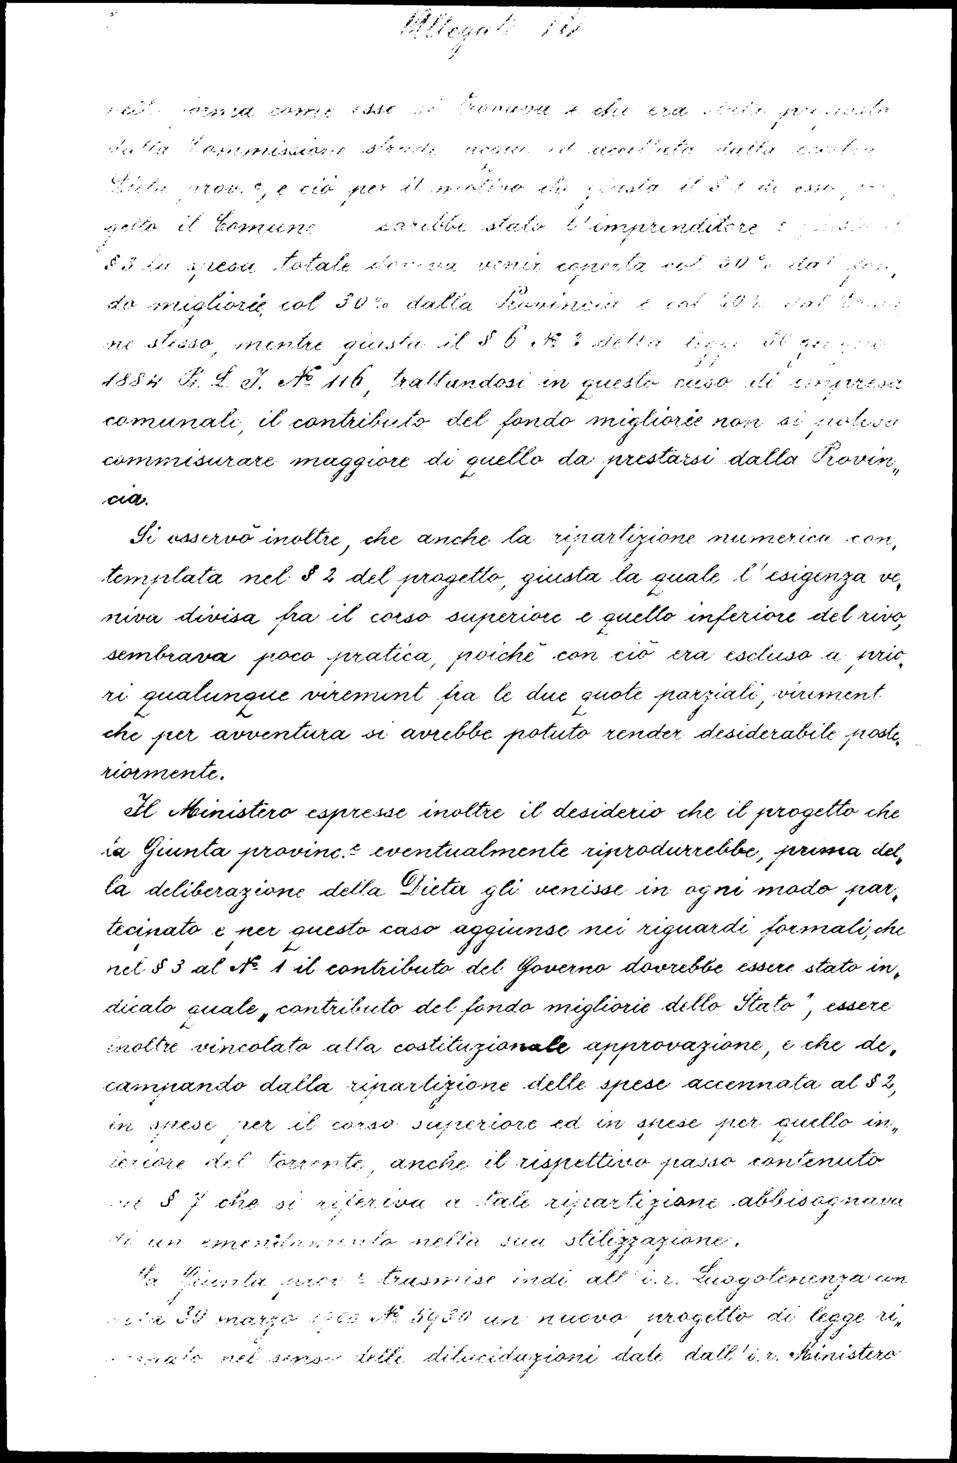 Allegato
forma come esso si trovava e che era stata
dalla Commissione strade, acque ed accettata dalla
Dieta prov.e, e ciò per il motivo che giusta il § 1 di esso
getto il Comune sarebbe stato l'imprenditore e
§ 3 la spesa totale doveva venir coperta col 50% dal fon„
do migliorie, col 30% dalla Provincia e col 20% dal Comu
ne stesso, mentre giusta il § 6 della legge 30
1884 B. L. I. No 116, trattandosi in questo caso di impresa
comunale, il contributo del fondo migliorie non si poteva
commisurare maggiore di quello da prestarsi dalla Provin„
cia.
Si osservò inoltre, che anche la ripartizione numerica con„
templata nel § 2 del progetto, giusta la quale l'esigenza ve„
niva divisa fra il corso superiore e quello inferiore del rivo,
sembrava poco pratica, poichè con ciò era escluso a prio„
ri qualunque virement fra le due quote parziali, virement
che per avventura si avrebbe potuto render desiderabile poste„
riormente.
Il Ministero espresse inoltre il desiderio che il progetto che
la Giunta provinc.e eventualmente riprodurrebbe, prima del„
la deliberazione della Dieta gli venisse in ogni modo par„
tecipato e per questo caso aggiunse nei riguardi formali, che
nel § 3 al No 1 il contributo del Governo dovrebbe essere stato in„
dicato quale „contributo del fondo migliorie dello Stato", essere
inoltre vincolato alla costituzionale approvazione, e che de„
campando dalla ripartizione delle spese accennata al § 2,
in spese per il corso superiore ed in spese per quello in„
feriore del torrente, anche il rispettivo passo contenuto
nel § 7 che si riferiva a tale ripartizione abbisognava
di un emendamento nella sua stilizzazione.
La Giunta prov.e trasmise indi all'i. r. Luogotenenza con
nota 30 marzo No un nuovo progetto di legge ri„
nel senso delle dilucidazioni date dall'i. r. Ministero